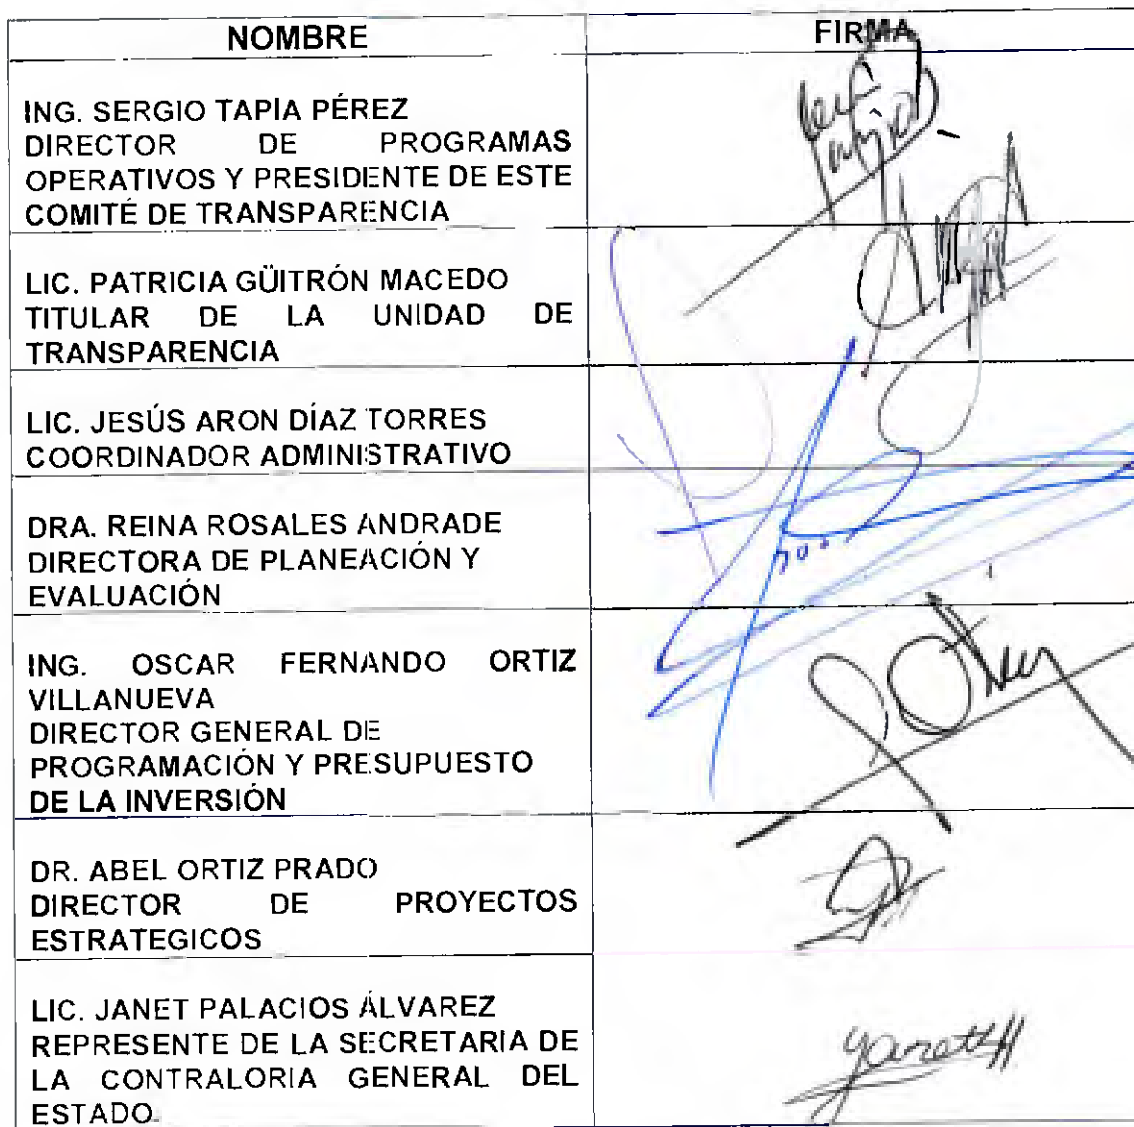 NOMBRE
FIRMA
ING. SERGIO TAPIA PÉREZ
DIRECTOR DE PROGRAMAS
OPERATIVOS Y PRESIDENTE DE ESTE
COMITÉ DE TRANSPARENCIA
LIC. PATRICIA GÜITRÓN MACEDO
TITULAR DE LA UNIDAD DE
TRANSPARENCIA
LIC. JESÚS ARON DÍAZ TORRES
COORDINADOR ADMINISTRATIVO
DRA. REINA ROSALES ANDRADE
DIRECTORA DE PLANEACIÓN Y
EVALUACIÓN
ING. OSCAR FERNANDO ORTIZ
VILLANUEVA
DIRECTOR GENERAL DE
PROGRAMACIÓN Y PRESUPUESTO
DE LA INVERSIÓN
DR. ABEL ORTIZ PRADO
DIRECTOR DE PROYECTOS
ESTRATEGICOS
LIC. JANET PALACIOS ÁLVAREZ
REPRESENTE DE LA SECRETARIA DE
LA CONTRALORIA GENERAL DEL
ESTADO.